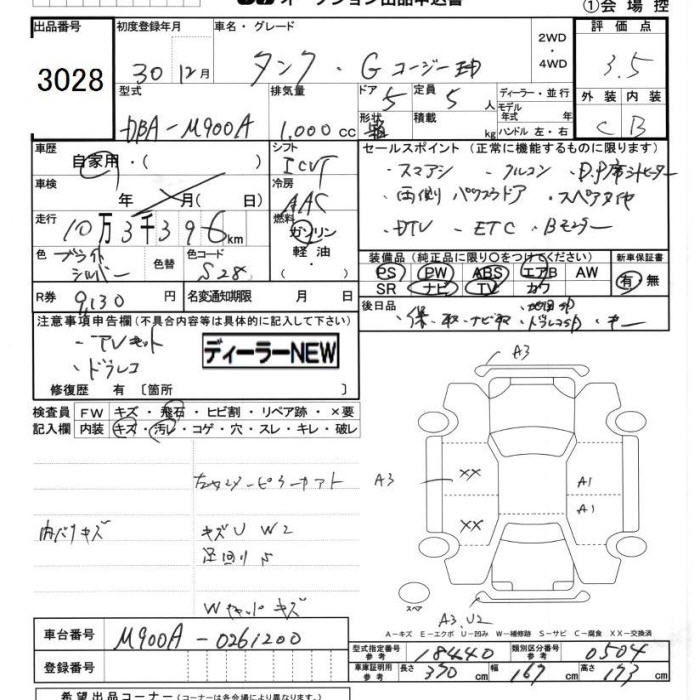 ①会場控
出品番号 初度登録年月 車名・グレード 評価点
3028
30 12月 タンク・G コージーエ 2WD・4WD 3.5
型式 排気量 ドア形状 定員 ディーラー・並行 外装 内装
DBA-M900A 1,000cc 5 5人 モデル年式 年 C B
積載 kg ハンドル 左・右
車歴 シフト セールスポイント (正常に機能するものに限ります)
自家用・( ) ICVT ・スマアシ ・フルコン ・D,P席シートヒーター
車検 冷房 ・両側パワスラドア ・スペアタイヤ
年 月( 日) AAC
走行 燃料 ・DTV ・ETC ・Bモニター
10万3千396km ガソリン 軽油
色 色替 色コード 装備品 (純正品に限り○をつけてください) 新車保証書
ブライトシルバー S28 PS PW ABS エアB AW 有・無
SR ナビ TV カワ
R券 9,130円 名変通知期限 月 日 後日品
・保・取・ナビ取
注意事項申告欄(不具合内容等は具体的に記入して下さい)
・AVキット ディーラーNEW
・ドラレコ
修復歴 有 〔箇所
検査員 FW キズ・飛石・ヒビ割・リペア跡・×要
記入欄 内装 キズ・汚レ・コゲ・穴・スレ・キレ・破レ
A3
A3 XX A1
A1
内バリキズ キズU W2 XX
足回りS
スペア
A3,U2
A-キズ E-エクボ U-凹み W-補修跡 S-サビ C-腐食 XX-交換済
車台番号 M900A-0261200
型式指定番号 参考 18440 類別区分番号 参考 0504
登録番号 車庫証明用 参考 長さ 370cm 幅 167cm 高さ 173cm
希望出品コーナー(コーナーは各会場により異なります。)